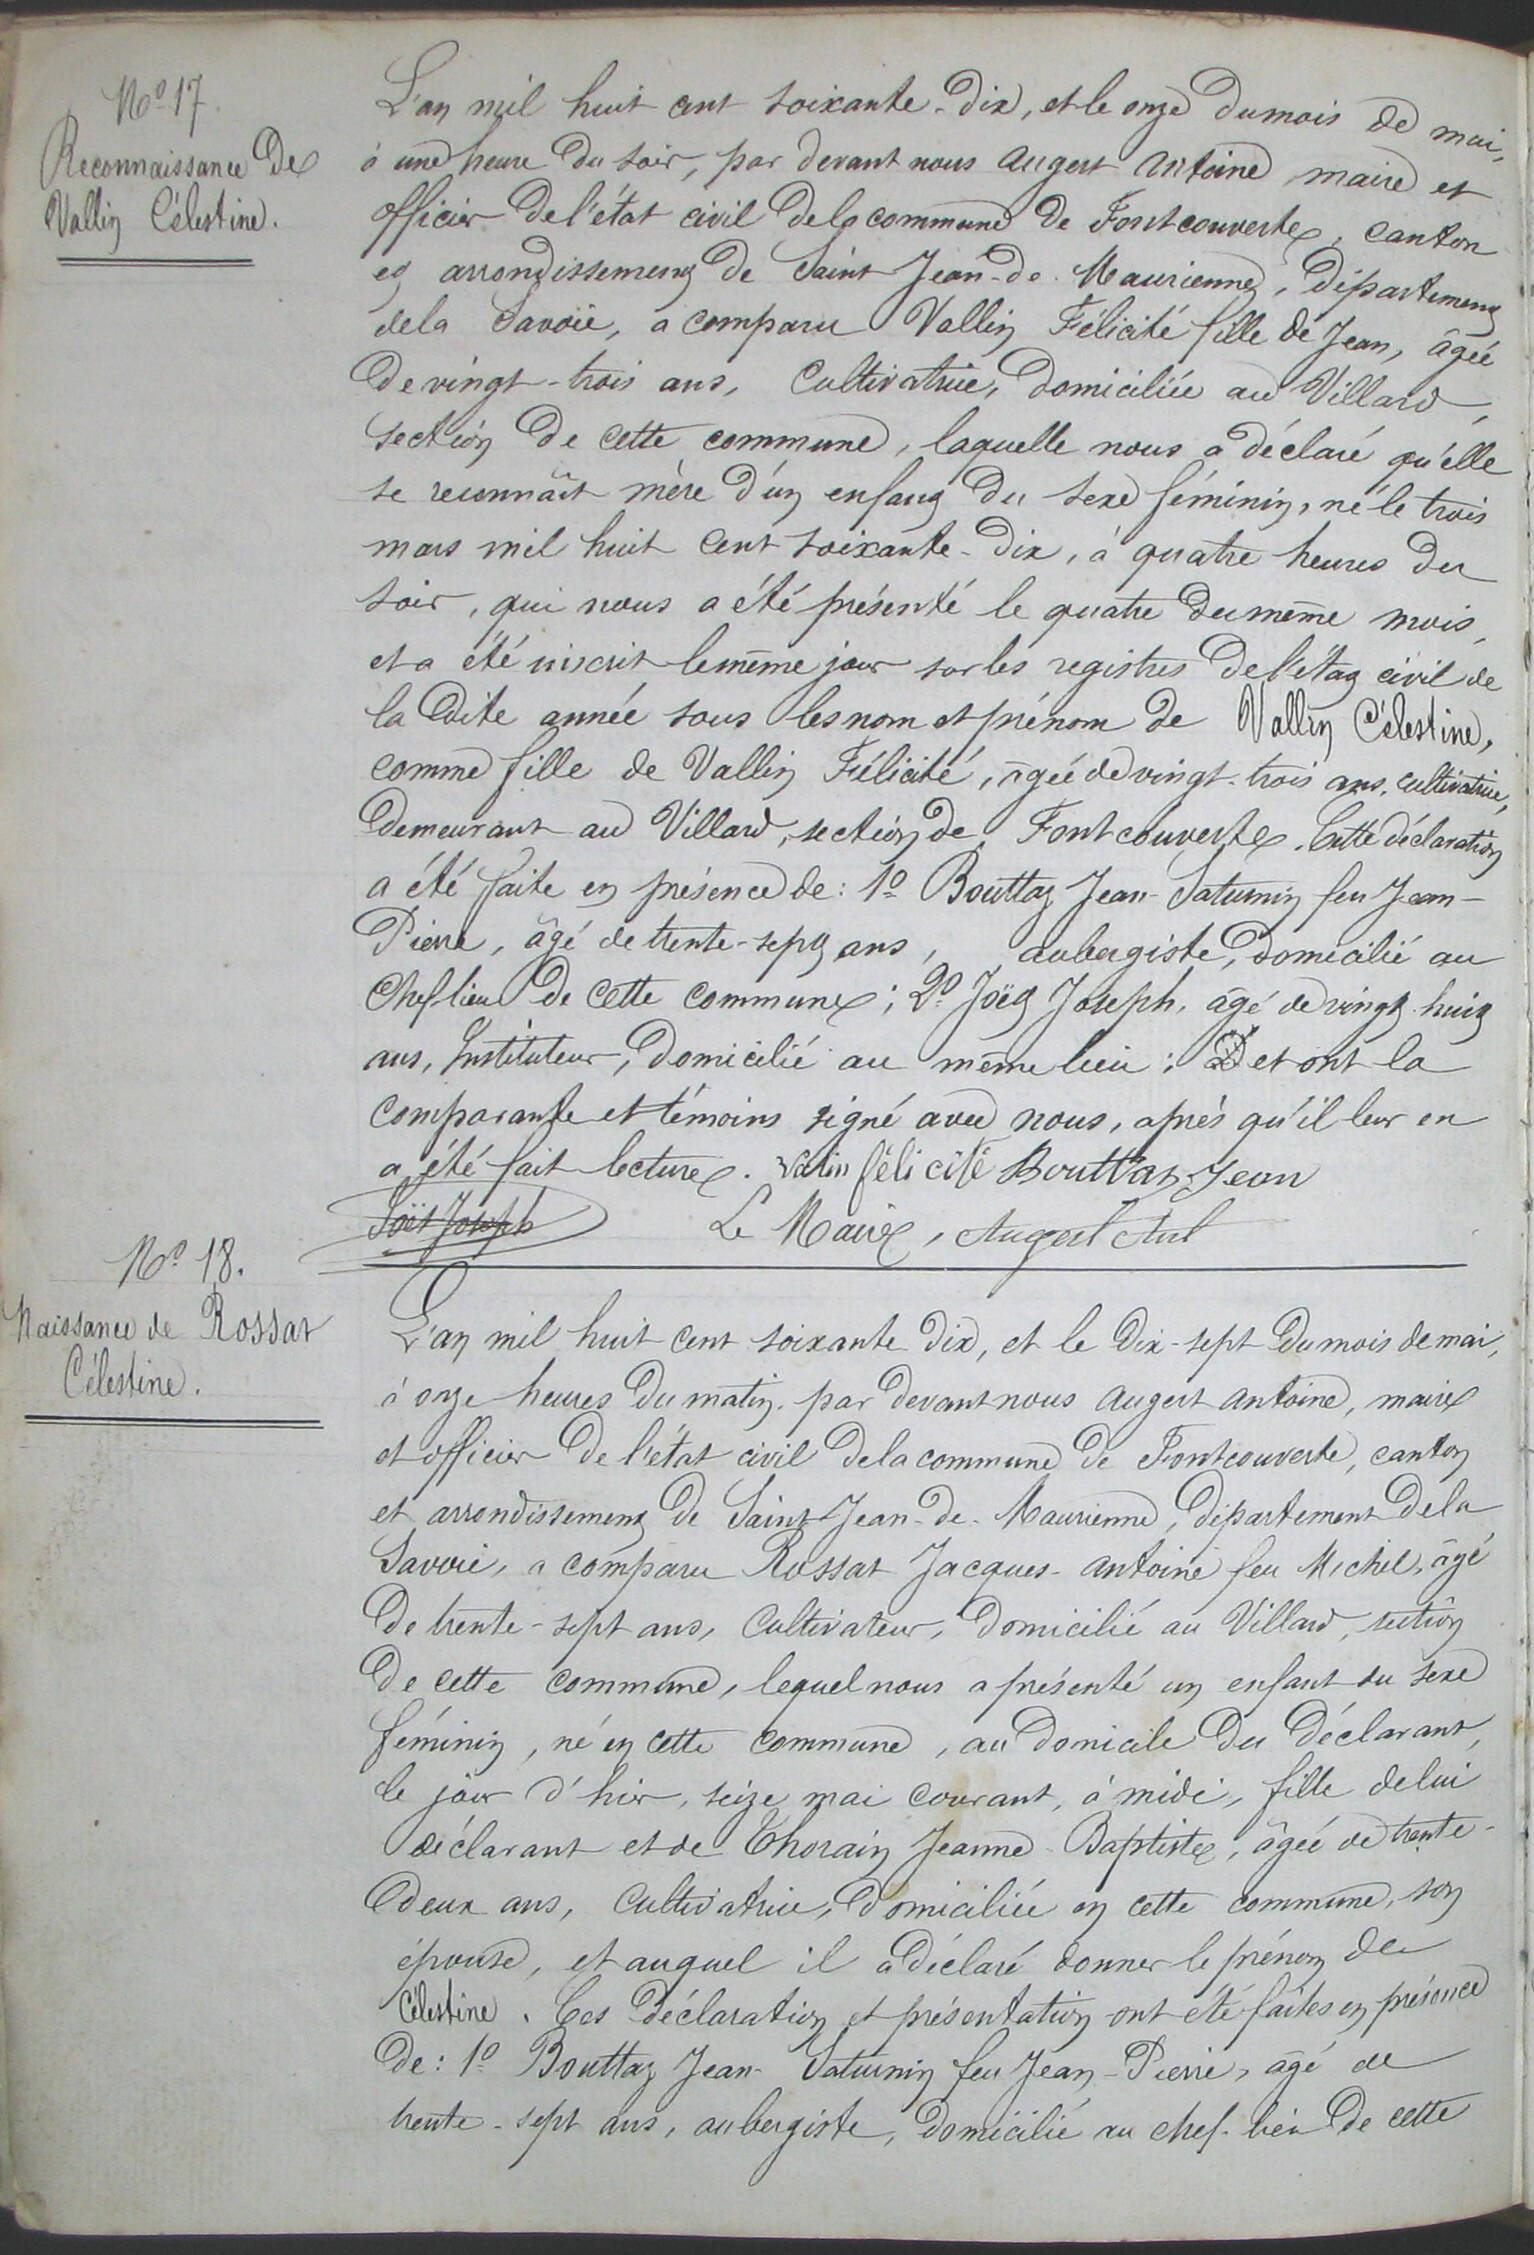 N.º 17.
Reconnaissance de
Vallin Célestine.
L'an mil huit cent soixante-dix, et le onze du mois de mai,
à une heure du soir, par devant nous Augert Antoine maire et
officier de l'état civil de la commune de Fontcouverte, canton
et arrondissement de Saint-Jean-de-Maurienne, Département
de la Savoie, a comparu Vallin Félicité fille de Jean, âgée
de vingt-trois ans, cultivatrice, domiciliée au Villard,
section de cette commune, laquelle nous a déclaré qu'elle
se reconnaît mère d'un enfant du sexe féminin, né le trois
mars mil huit cent soixante-dix, à quatre heures du
soir, qui nous a été présenté le quatre du même mois,
et a été inscrit le même jour sur les registres de l'état civil de
la dite année sous les nom et prénom de Vallin Célestine,
comme fille de Vallin Félicité, âgée de vingt-trois ans, cultivatrice,
demeurant au Villard, section de Fontcouverte. Cette déclaration
a été faite en présence de: 1º Bouttaz Jean-Saturnin feu Jean-
Pierre, âgé de trente-sept ans, aubergiste, domicilié au
Chef lieu de cette commune; 2º Joët Joseph, âgé de vingt-huit
ans, Instituteur, domicilié au même lieu; et ont la
comparante et témoins signé avec nous, après qu'il leur en
a été fait lecture. Valin félicité Bouttaz Jean
Joët Joseph Le Maire, Augert Ant
N.º 18.
Naissance de Rossat
Célestine.
L'an mil huit cent soixante dix, et le dix-sept du mois de mai,
à onze heures du matin, par devant nous Augert Antoine, maire
et officier de l'état civil de la commune de Fontcouverte, canton
et arrondissement de Saint-Jean-de-Maurienne, département de la
Savoie, a comparu Rossat Jacques-Antoine feu Michel, âgé
de trente-sept ans, cultivateur, domicilié au Villard, section
de cette commune, lequel nous a présenté un enfant du sexe
féminin, né en cette commune, au domicile du déclarant,
le jour d'hier, seize mai courant, à midi, fille de lui
déclarant et de Thorain Jeanne-Baptiste, âgée de trente-
deux ans, cultivatrice, domiciliée en cette commune, son
épouse, et auquel il a déclaré donner le prénom de
Célestine. Ces déclaration et présentation ont été faites en présence
de: 1º Bouttaz Jean-Saturnin feu Jean-Pierre, âgé de
trente-sept ans, aubergiste, domicilié au chef-lieu de cette